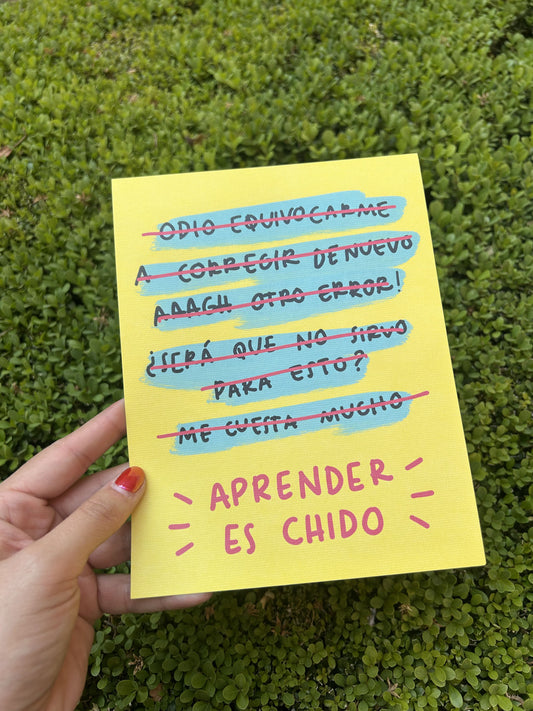 ODIO EQUIVOCARME
A CORREGIR DE NUEVO
AAAGH OTRO ERROR!
¿SERÁ QUE NO SIRVO
PARA ESTO?
ME CUESTA MUCHO
APRENDER
ES CHIDO